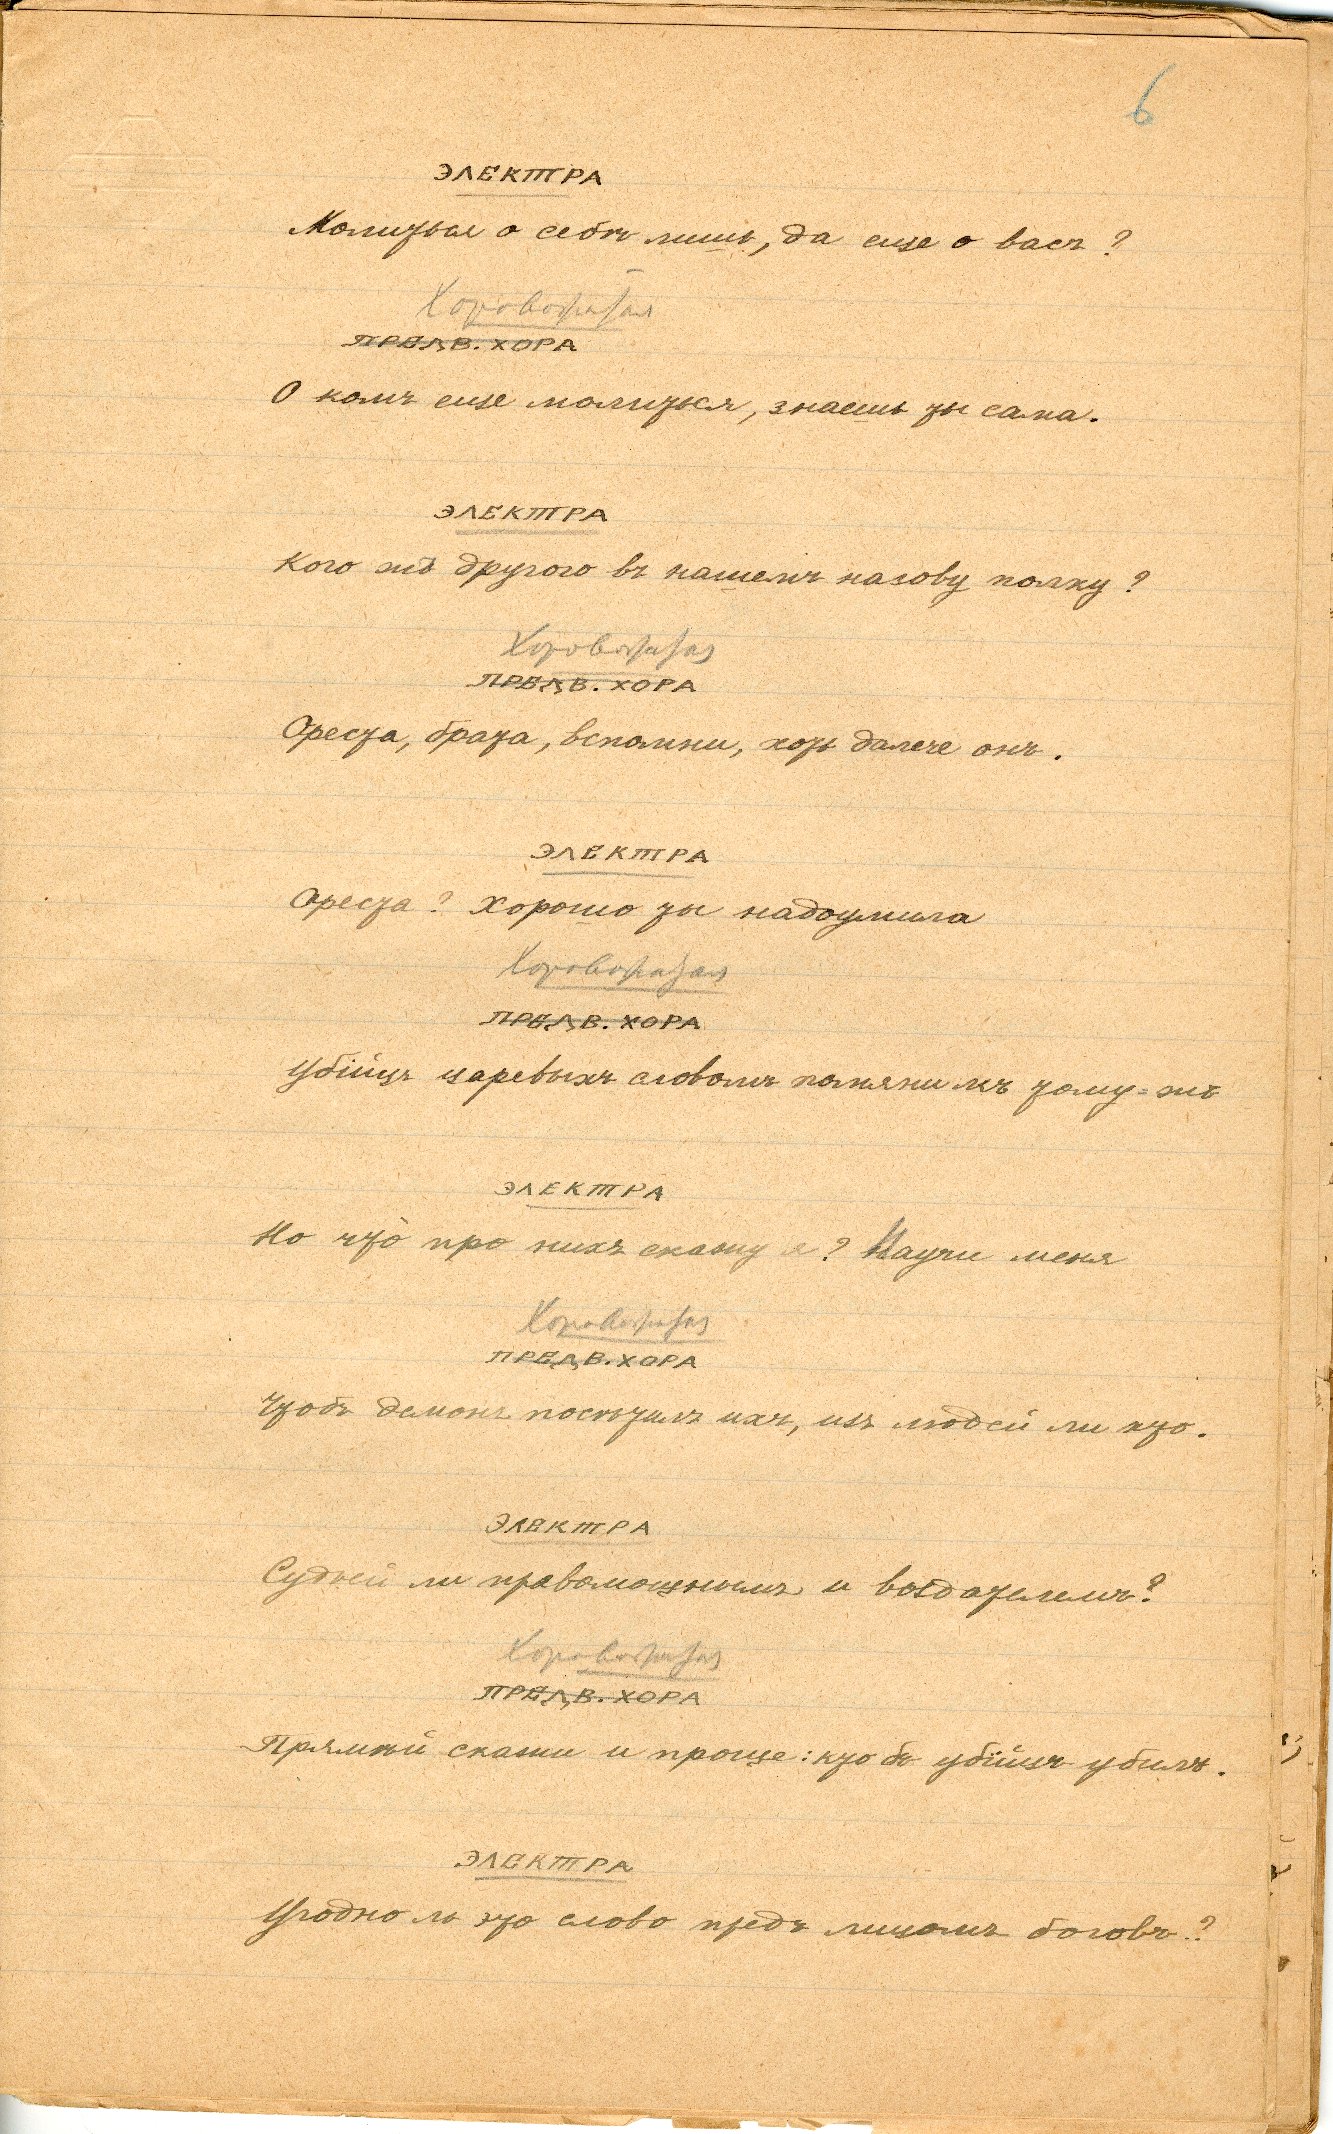 6
ЭЛЕКТРА
Молиться о себѣ лишь, да еще о васъ?
Хоровожатая
ПРЕДВ. ХОРА
О комъ еще молиться, знаешь ты сама.
ЭЛЕКТРА
Кого жъ другого въ нашемъ назову полку?
Хоровожатая
ПРЕДВ. ХОРА
Ореста, брата, вспомни, хоть далече онъ.
ЭЛЕКТРА
Ореста? Хорошо ты надоумила
Хоровожатая
ПРЕДВ. ХОРА
Убійцъ царевыхъ словомъ помяни къ тому-жъ
ЭЛЕКТРА
Но что̀ про нихъ скажу я? Научи меня
Хоровожатая
ПРЕДВ. ХОРА
Чтобъ демонъ посѣтилъ ихъ, изъ людей ли кто.
ЭЛЕКТРА
Судьей ли правомощнымъ и воздателемъ?
Хоровожатая
ПРЕДВ. ХОРА
Прямѣй скажи и проще: кто бъ убійцъ убилъ.
ЭЛЕКТРА
Угодно ль это слово предъ лицомъ боговъ?